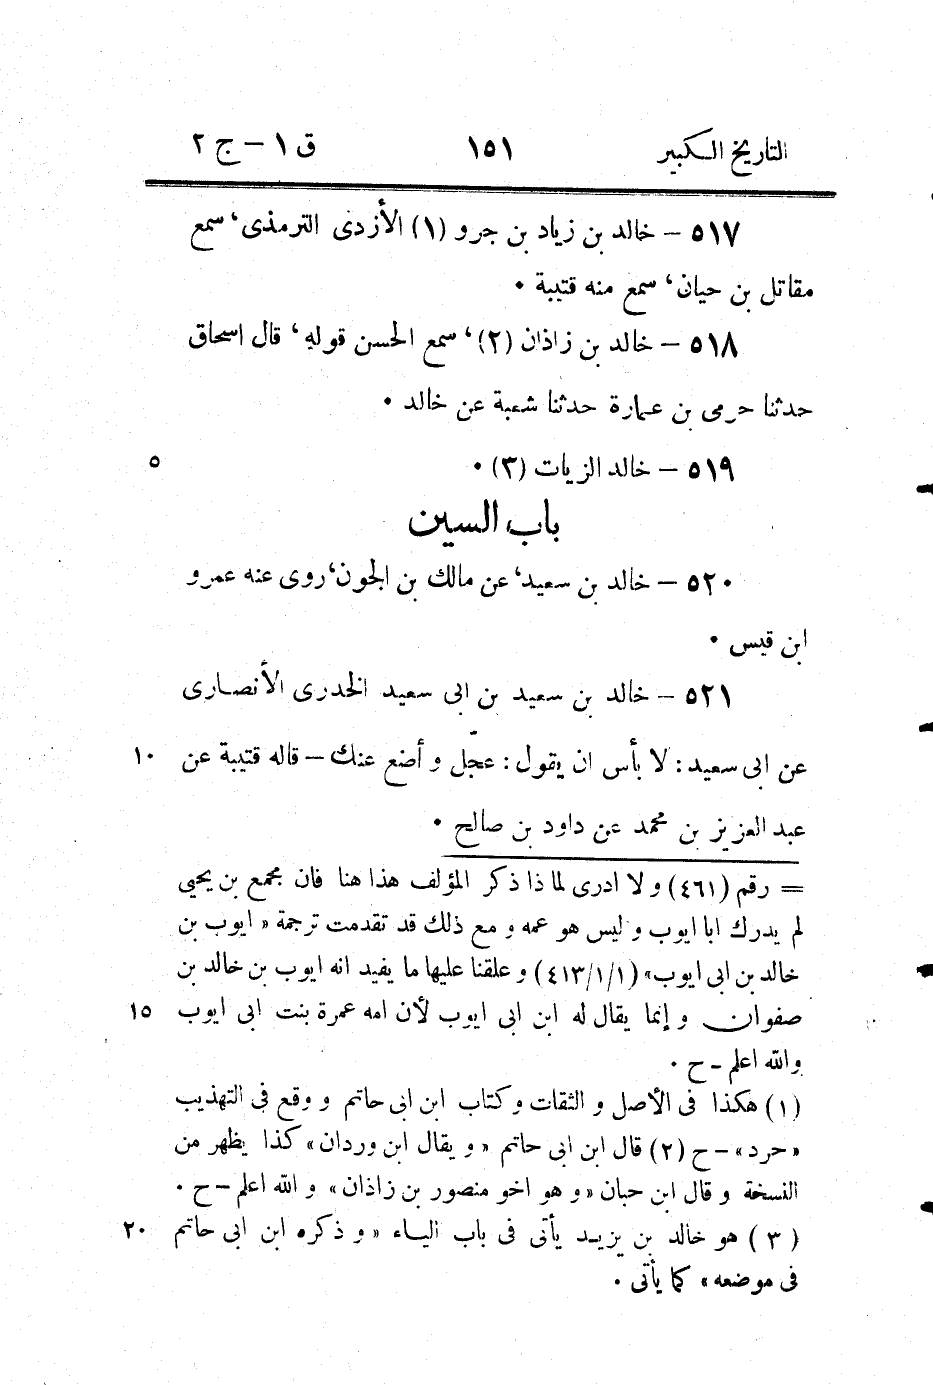 التاريخ الكبير ١٥١ ق ١ – ج ٢
٥١٧ – خالد بن زياد بن جرو (١) الأزدى الترمذى، سمع
مقاتل بن حيان، سمع منه قتيبة ٠
٥١٨ – خالد بن زاذان (٢)، سمع الحسن قوله، قال اسحاق
حدثنا حرمى بن عمارة حدثنا شعبة عن خالد ٠
٥١٩ – خالد الزيات (٣) ٠ ٥
باب السين
٥٢٠ – خالد بن سعيد، عن مالك بن الجون، روى عنه عمرو
ابن قيس ٠
٥٢١ – خالد بن سعيد بن ابى سعيد الخدرى الأنصارى
عن ابى سعيد: لا بأس ان يقول: عجّل و أضع عنك – قاله قتيبة عن ١٠
عبد العزيز بن محمد عن داود بن صالح ٠
= رقم (٤٦١) و لا ادرى لماذا ذكر المؤلف هذا هنا فان مجمع بن يحيى
لم يدرك ابا ايوب و ليس هو عمه و مع ذلك قد تقدمت ترجمة «ايوب بن
خالد بن ابى ايوب» (٤١٣/١/١) و علقنا عليها ما يفيد انه ايوب بن خالد بن
صفوان و إنما يقال له ابن ابى ايوب لأن امه عمرة بنت ابى ايوب ١٥
والله اعلم - ح ٠
(١) هكذا فى الأصل و الثقات و كتاب ابن ابى حاتم و وقع فى التهذيب
«حرد» - ح (٢) قال ابن ابى حاتم «و يقال ابن وردان» كذا يظهر من
النسخة و قال ابن حبان «و هو اخو منصور بن زاذان» و الله اعلم - ح ٠
(٣) هو خالد بن يزيد يأتى فى باب الياء «و ذكره ابن ابى حاتم ٢٠
فى موضعه» كما يأتى ٠